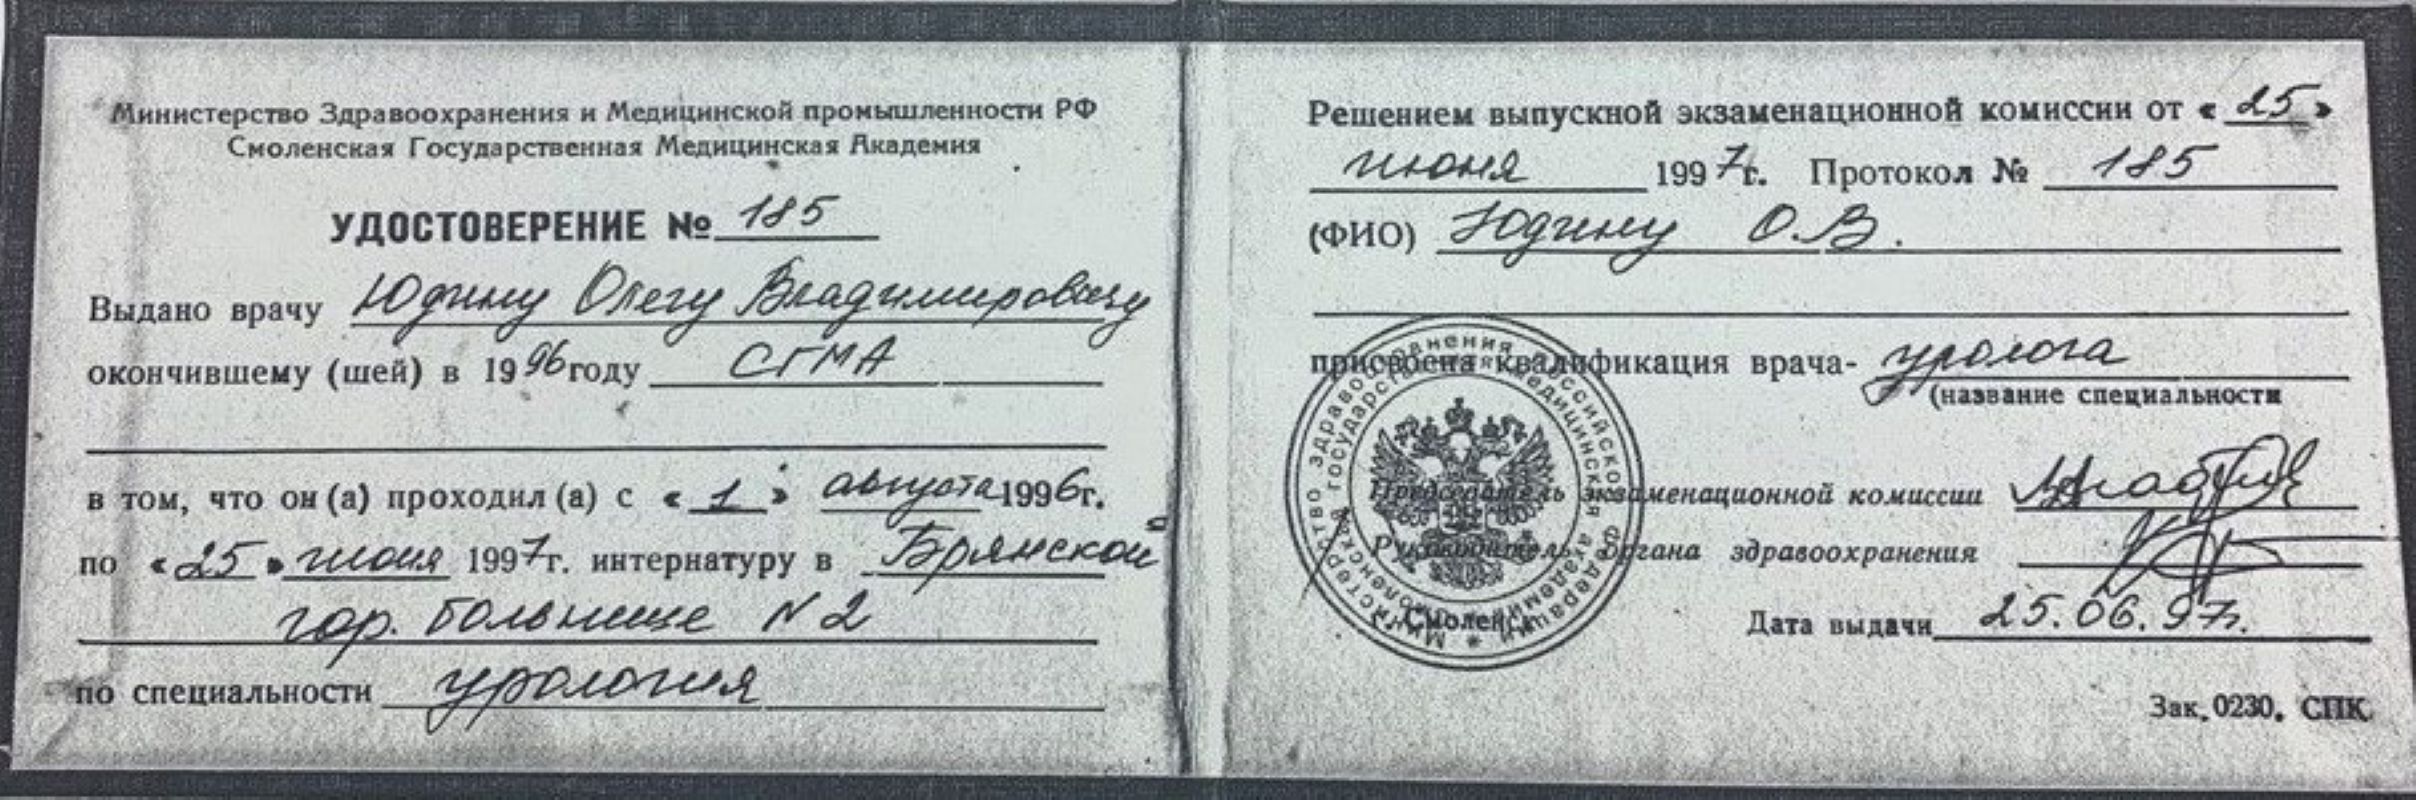 Министерство Здравоохранения и Медицинской промышленности РФ
Смоленская Государственная Медицинская Академия
УДОСТОВЕРЕНИЕ № 185
Выдано врачу Юдину Олегу Владимировичу
окончившему (шей) в 1996 году СГМА
в том, что он (а) проходил (а) с «1» августа 1996г.
по «25» июня 1997г. интернатуру в Брянской
гор. больнице N 2
по специальности урология
Решением выпускной экзаменационной комиссии от «25»
июня 1997г. Протокол № 185
(ФИО) Юдину О.В.
присвоена квалификация врача- уролога
(название специальности
Председатель экзаменационной комиссии
Руководитель органа здравоохранения
г. Смоленск
Дата выдачи 25.06.97г.
Зак. 0230. СПК
Министерство здравоохранения Российской Федерации
Смоленская государственная медицинская академия